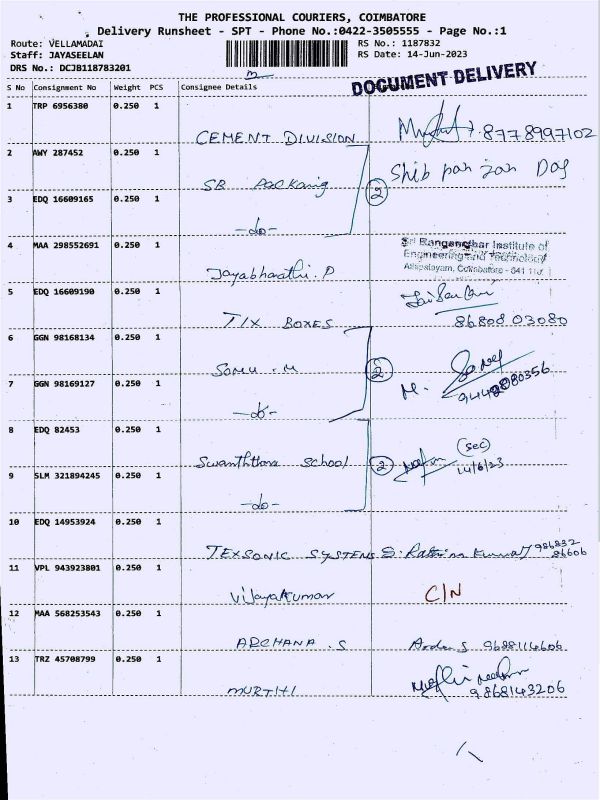 THE PROFESSIONAL COURIERS, COIMBATORE
Delivery Runsheet - SPT - Phone No.:0422-3505555 - Page No.:1
Route: VELLAMADAI
Staff: JAYASEELAN
DRS No.: DCJB118783201
RS No.: 1187832
RS Date: 14-Jun-2023
DOCUMENT DELIVERY
S No Consignment No Weight PCS Consignee Details
1 TRP 6956380 0.250 1
CEMENT DIVISION 8778997102
2 AWY 287452 0.250 1
SB Packaging 2 Shib pan zan Das
3 EDQ 16609165 0.250 1
-do-
4 MAA 298552691 0.250 1
Sri Ranganathar Institute of
Engineering and Technology
Athipalayam, Coimbatore - 641 110
Jayabharathi. P
5 EDQ 16609190 0.250 1
TIX BOXES 86808 03080
6 GGN 98168134 0.250 1
Somu. M 2
7 GGN 98169127 0.250 1
-do- M. 9442980356
8 EDQ 82453 0.250 1
Swanththra School 2 (sec)
14/6/23
9 SLM 321894245 0.250 1
-do-
10 EDQ 14953924 0.250 1
TEXSONIC SYSTEMS S. Rathna Kumar 986832
86606
11 VPL 943923801 0.250 1
Vijayakumar C/N
12 MAA 568253543 0.250 1
ARCHANA .S 9688114606
13 TRZ 45708799 0.250 1
MURTHI 9868143206